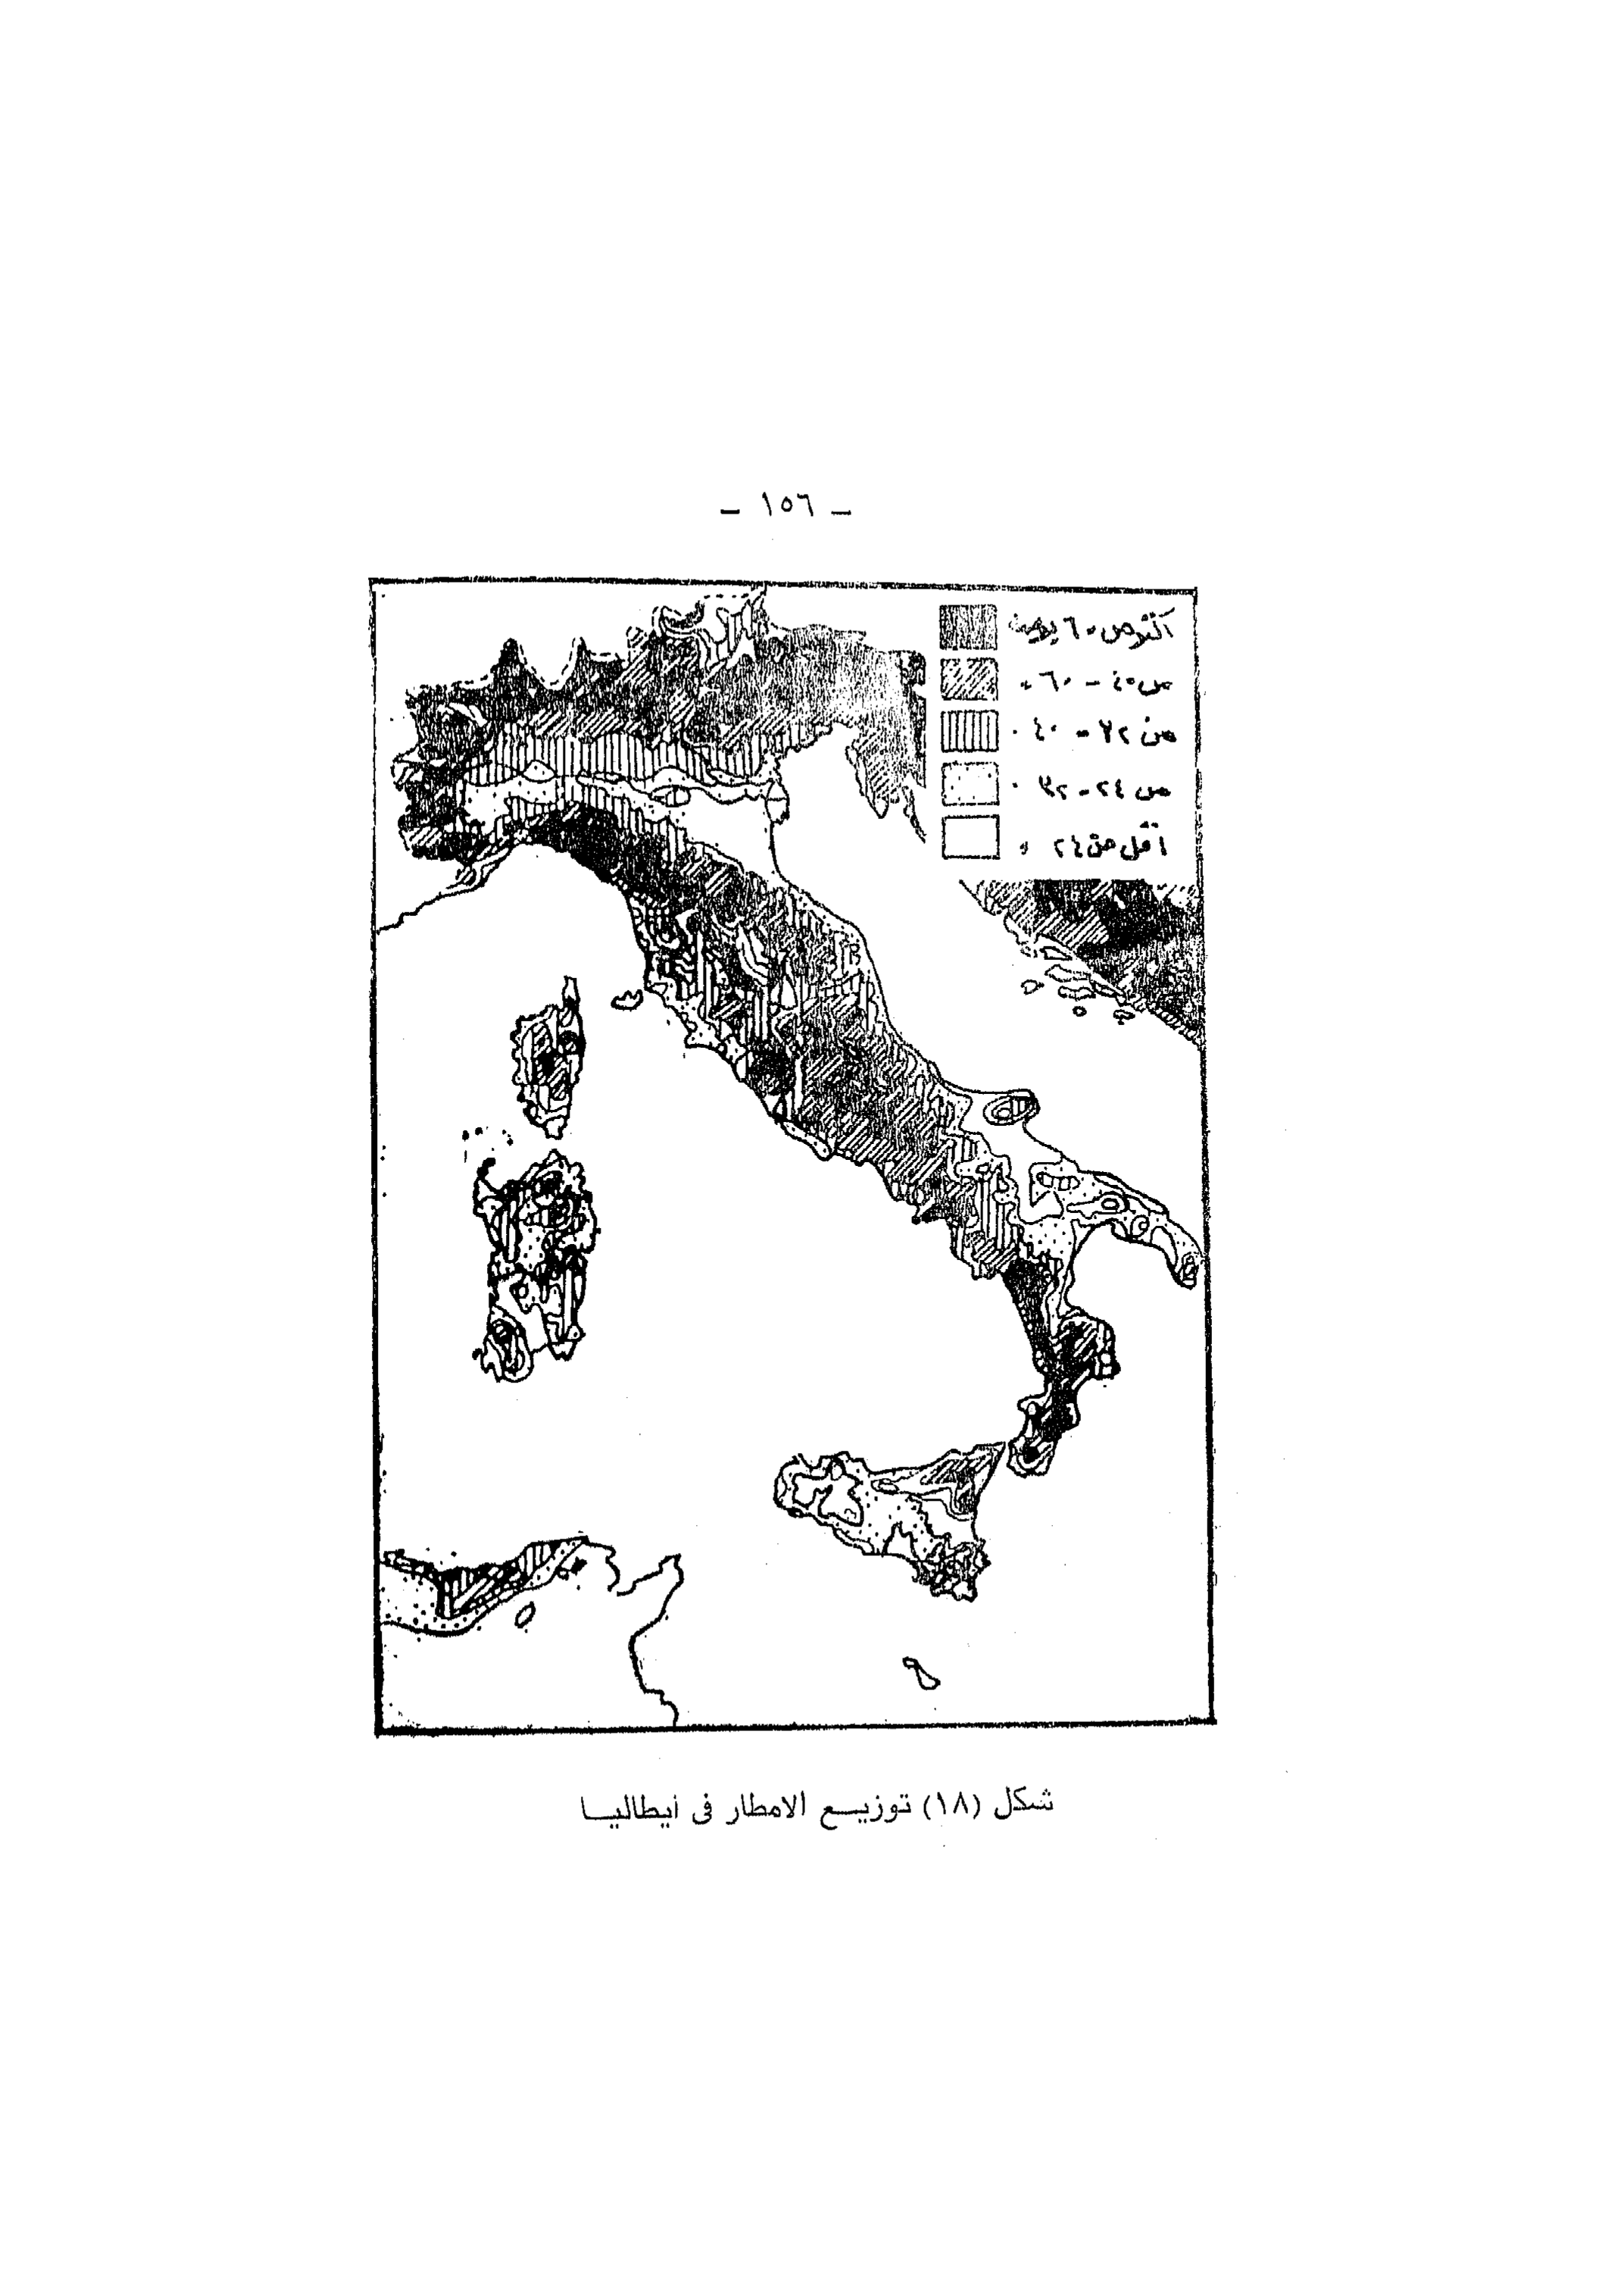 - ١٥٦ -
أكثر من ٦٠ بوصة
من ٤٠ - ٦٠ "
من ٣٢ - ٤٠ "
من ٢٤ - ٣٢ "
أقل من ٢٤ "
شكل (١٨) توزيع الامطار فى ايطاليا